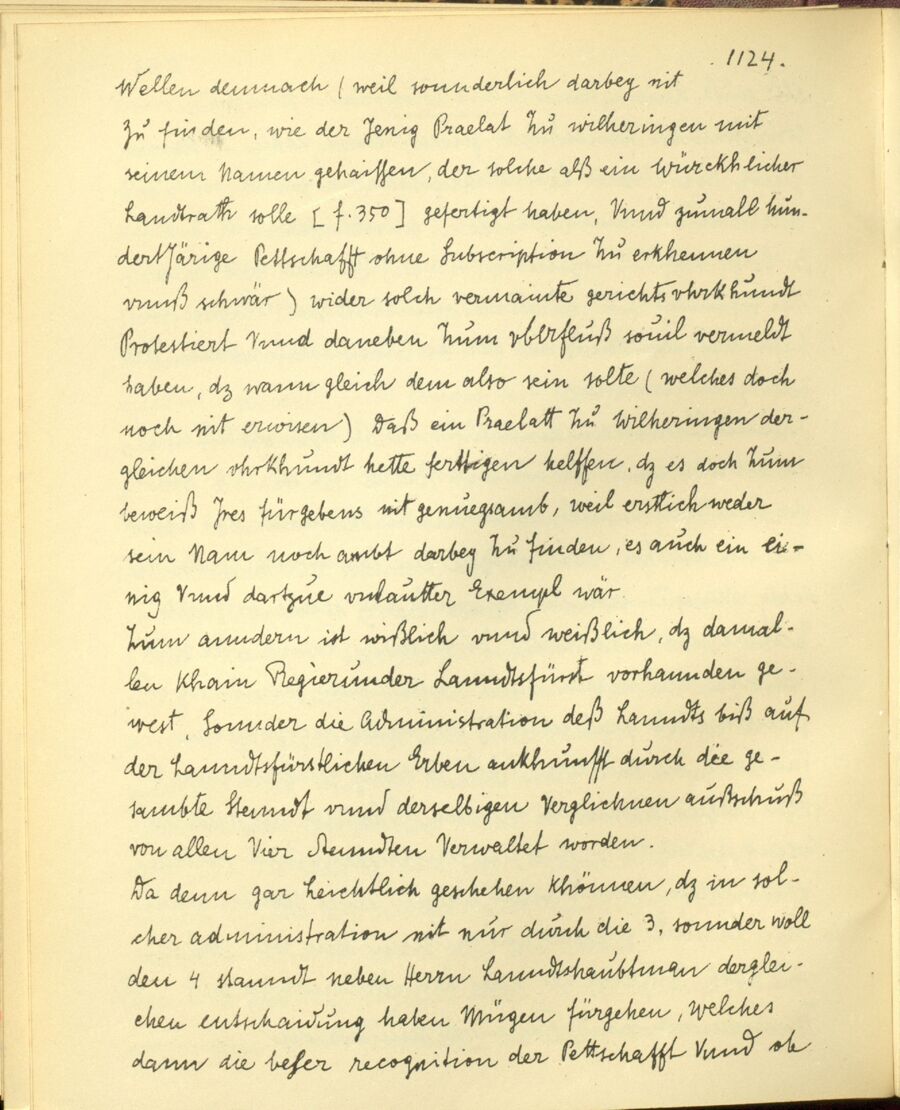 1124.
Wellen demnach (weil sonnderlich darbey nit
Zu finden, wie der Jenig Praelat Zu wilheringen mit
seinem Namen gehaissen, der solche alß ein würckhlicher
Landtrath solle [f. 350] gefertigt haben, Vnnd zumall hun-
dert Järige Pettschafft ohne Subscription Zu erkhennen
vnuß schwär) wider solch vermainte gerichts vhrkhundt
Protestiert Vnnd daneben Zum vberfluß souil vermeldt
haben, dz wann gleich dem also sein solte (welches doch
noch nit erwisen) Daß ein Praelatt Zu Wilheringen der-
gleichen vhrkhundt hette ferttigen helffen, dz es doch Zum
beweiß Jres fürgebens nit genuegsamb, weil erstlich weder
sein Nam noch ambt darbey Zu finden, es auch ein ei-
nig Vnnd dartzue vnlautter Exempl wär.
Zum anndern ist wißlich vnnd weißlich, dz damal-
len Khain Regierunder Lanndtsfürst vorhannden ge-
west, Sonnder die Administration deß Lanndts biß auf
der Lanndtsfürstlichen Erben ankhunfft durch die ge-
sambte Stenndt vnnd derselbigen Verglichnen außschuß
von allen Vier Stenndten Verwaltet worden.
Da denn gar Leichtlich geschehen Khönnen, dz in sol-
cher administration nit nur durch die 3, sonnder woll
den 4 stanndt neben Herrn Lanndtshaubtman derglei-
chen entschaidung haben Mügen fürgehen, welches
dann die besser recognition der Pettschafft Vnnd ob